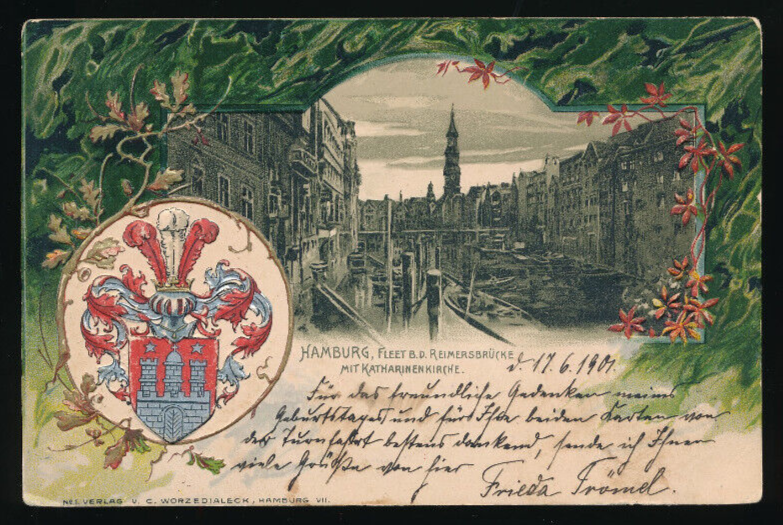 HAMBURG, FLEET B.D. REIMERSBRÜCKE
MIT KATHARINENKIRCHE.
d. 17.6.1901.
Für das freundliche Gedenken meines
Geburtstages und fürs Ihre beiden Karten von
der Turnfahrt bestens dankend, sende ich Ihnen
viele Grüße von hier
Frieda Trömel.
VERLAG V. C. WORZEDIALECK, HAMBURG VII.